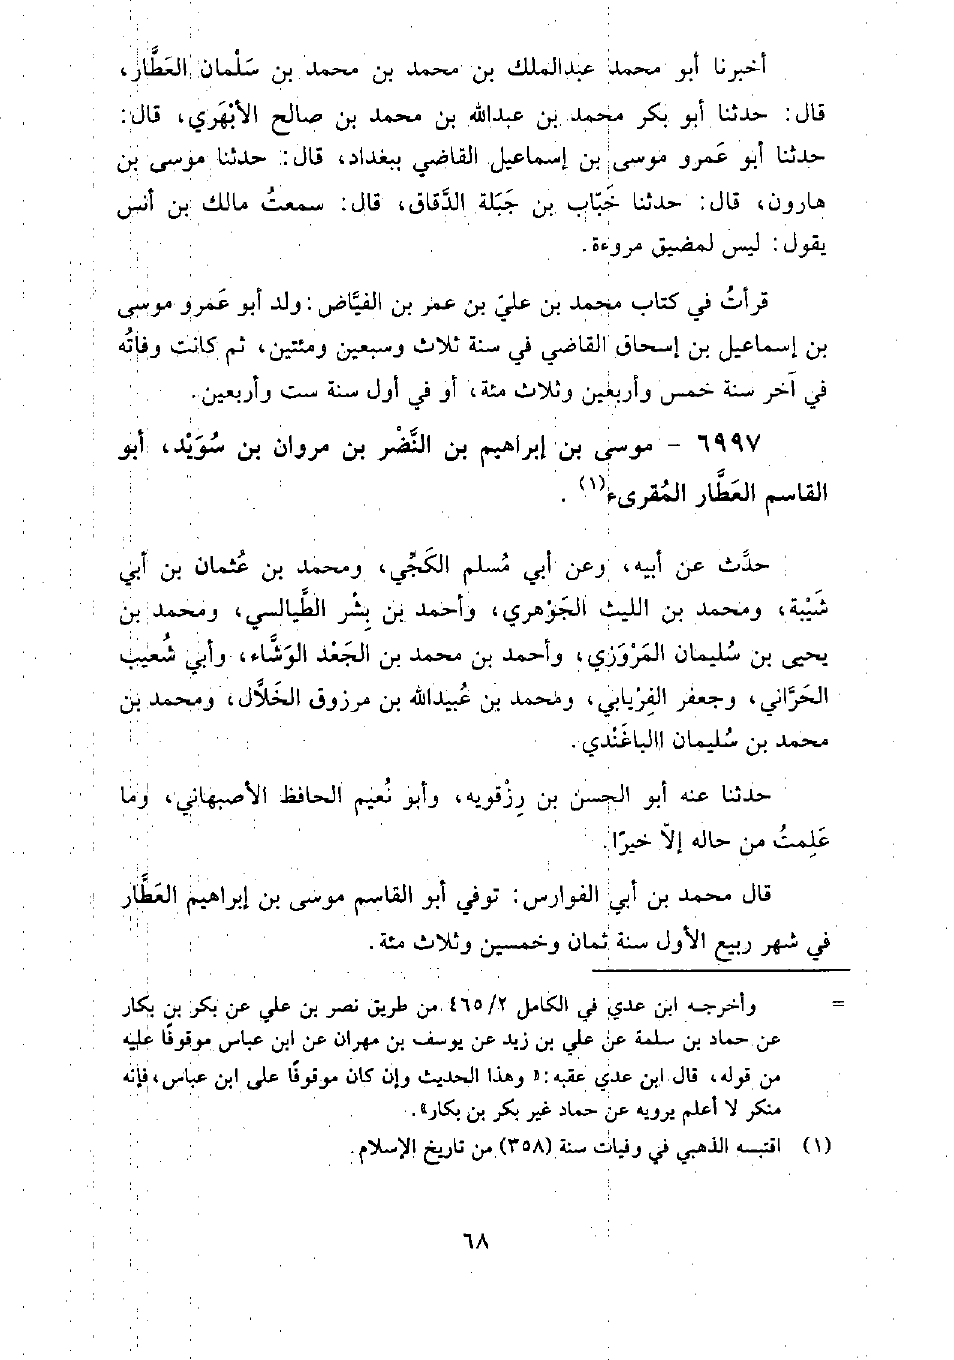 أخبرنا أبو محمد عبدالملك بن محمد بن محمد بن سَلْمان العَطَّار،
قال: حدثنا أبو بكر محمد بن عبدالله بن محمد بن صالح الأبْهَري، قال:
حدثنا أبو عَمرو موسى بن إسماعيل القاضي ببغداد، قال: حدثنا موسى بن
هارون، قال: حدثنا خَبَّاب بن جَبَلة الدَّقاق، قال: سمعتُ مالك بن أنس
يقول: ليس لمضيق مروءة.
قرأتُ في كتاب محمد بن عليّ بن عمر بن الفيَّاض: ولد أبو عَمرو موسى
بن إسماعيل بن إسحاق القاضي في سنة ثلاث وسبعين ومئتين، ثم كانت وفاتُه
في آخر سنة خمس وأربعين وثلاث مئة، أو في أول سنة ست وأربعين.
٦٩٩٧ - موسى بن إبراهيم بن النَّضْر بن مروان بن سُوَيْد، أبو
القاسم العَطَّار المُقرىء(١).
حدَّث عن أبيه، وعن أبي مُسلم الكَجِّي، ومحمد بن عُثمان بن أبي
شَيْبة، ومحمد بن الليث الجَوْهري، وأحمد بن بِشْر الطَّيالسي، ومحمد بن
يحيى بن سُليمان المَرْوَزي، وأحمد بن محمد بن الجَعْد الوَشَّاء، وأبي شُعيب
الحَرَّاني، وجعفر الفِرْيابي، ومحمد بن عُبيدالله بن مرزوق الخَلَّال، ومحمد بن
محمد بن سُليمان االباغَنْدي.
حدثنا عنه أبو الحسن بن رِزْقويه، وأبو نُعيم الحافظ الأصبهاني، وما
عَلِمتُ من حاله إلاّ خيرًا.
قال محمد بن أبي الفوارس: توفي أبو القاسم موسى بن إبراهيم العَطَّار
في شهر ربيع الأول سنة ثمان وخمسين وثلاث مئة.
= وأخرجه ابن عدي في الكامل ٢/ ٤٦٥ من طريق نصر بن علي عن بكر بن بكار
عن حماد بن سلمة عن علي بن زيد عن يوسف بن مهران عن ابن عباس موقوفًا عليه
من قوله، قال ابن عدي عقبه: «وهذا الحديث وإن كان موقوفًا على ابن عباس، فإنه
منكر لا أعلم يرويه عن حماد غير بكر بن بكار».
(١) اقتبسه الذهبي في وفيات سنة (٣٥٨) من تاريخ الإسلام.
٦٨